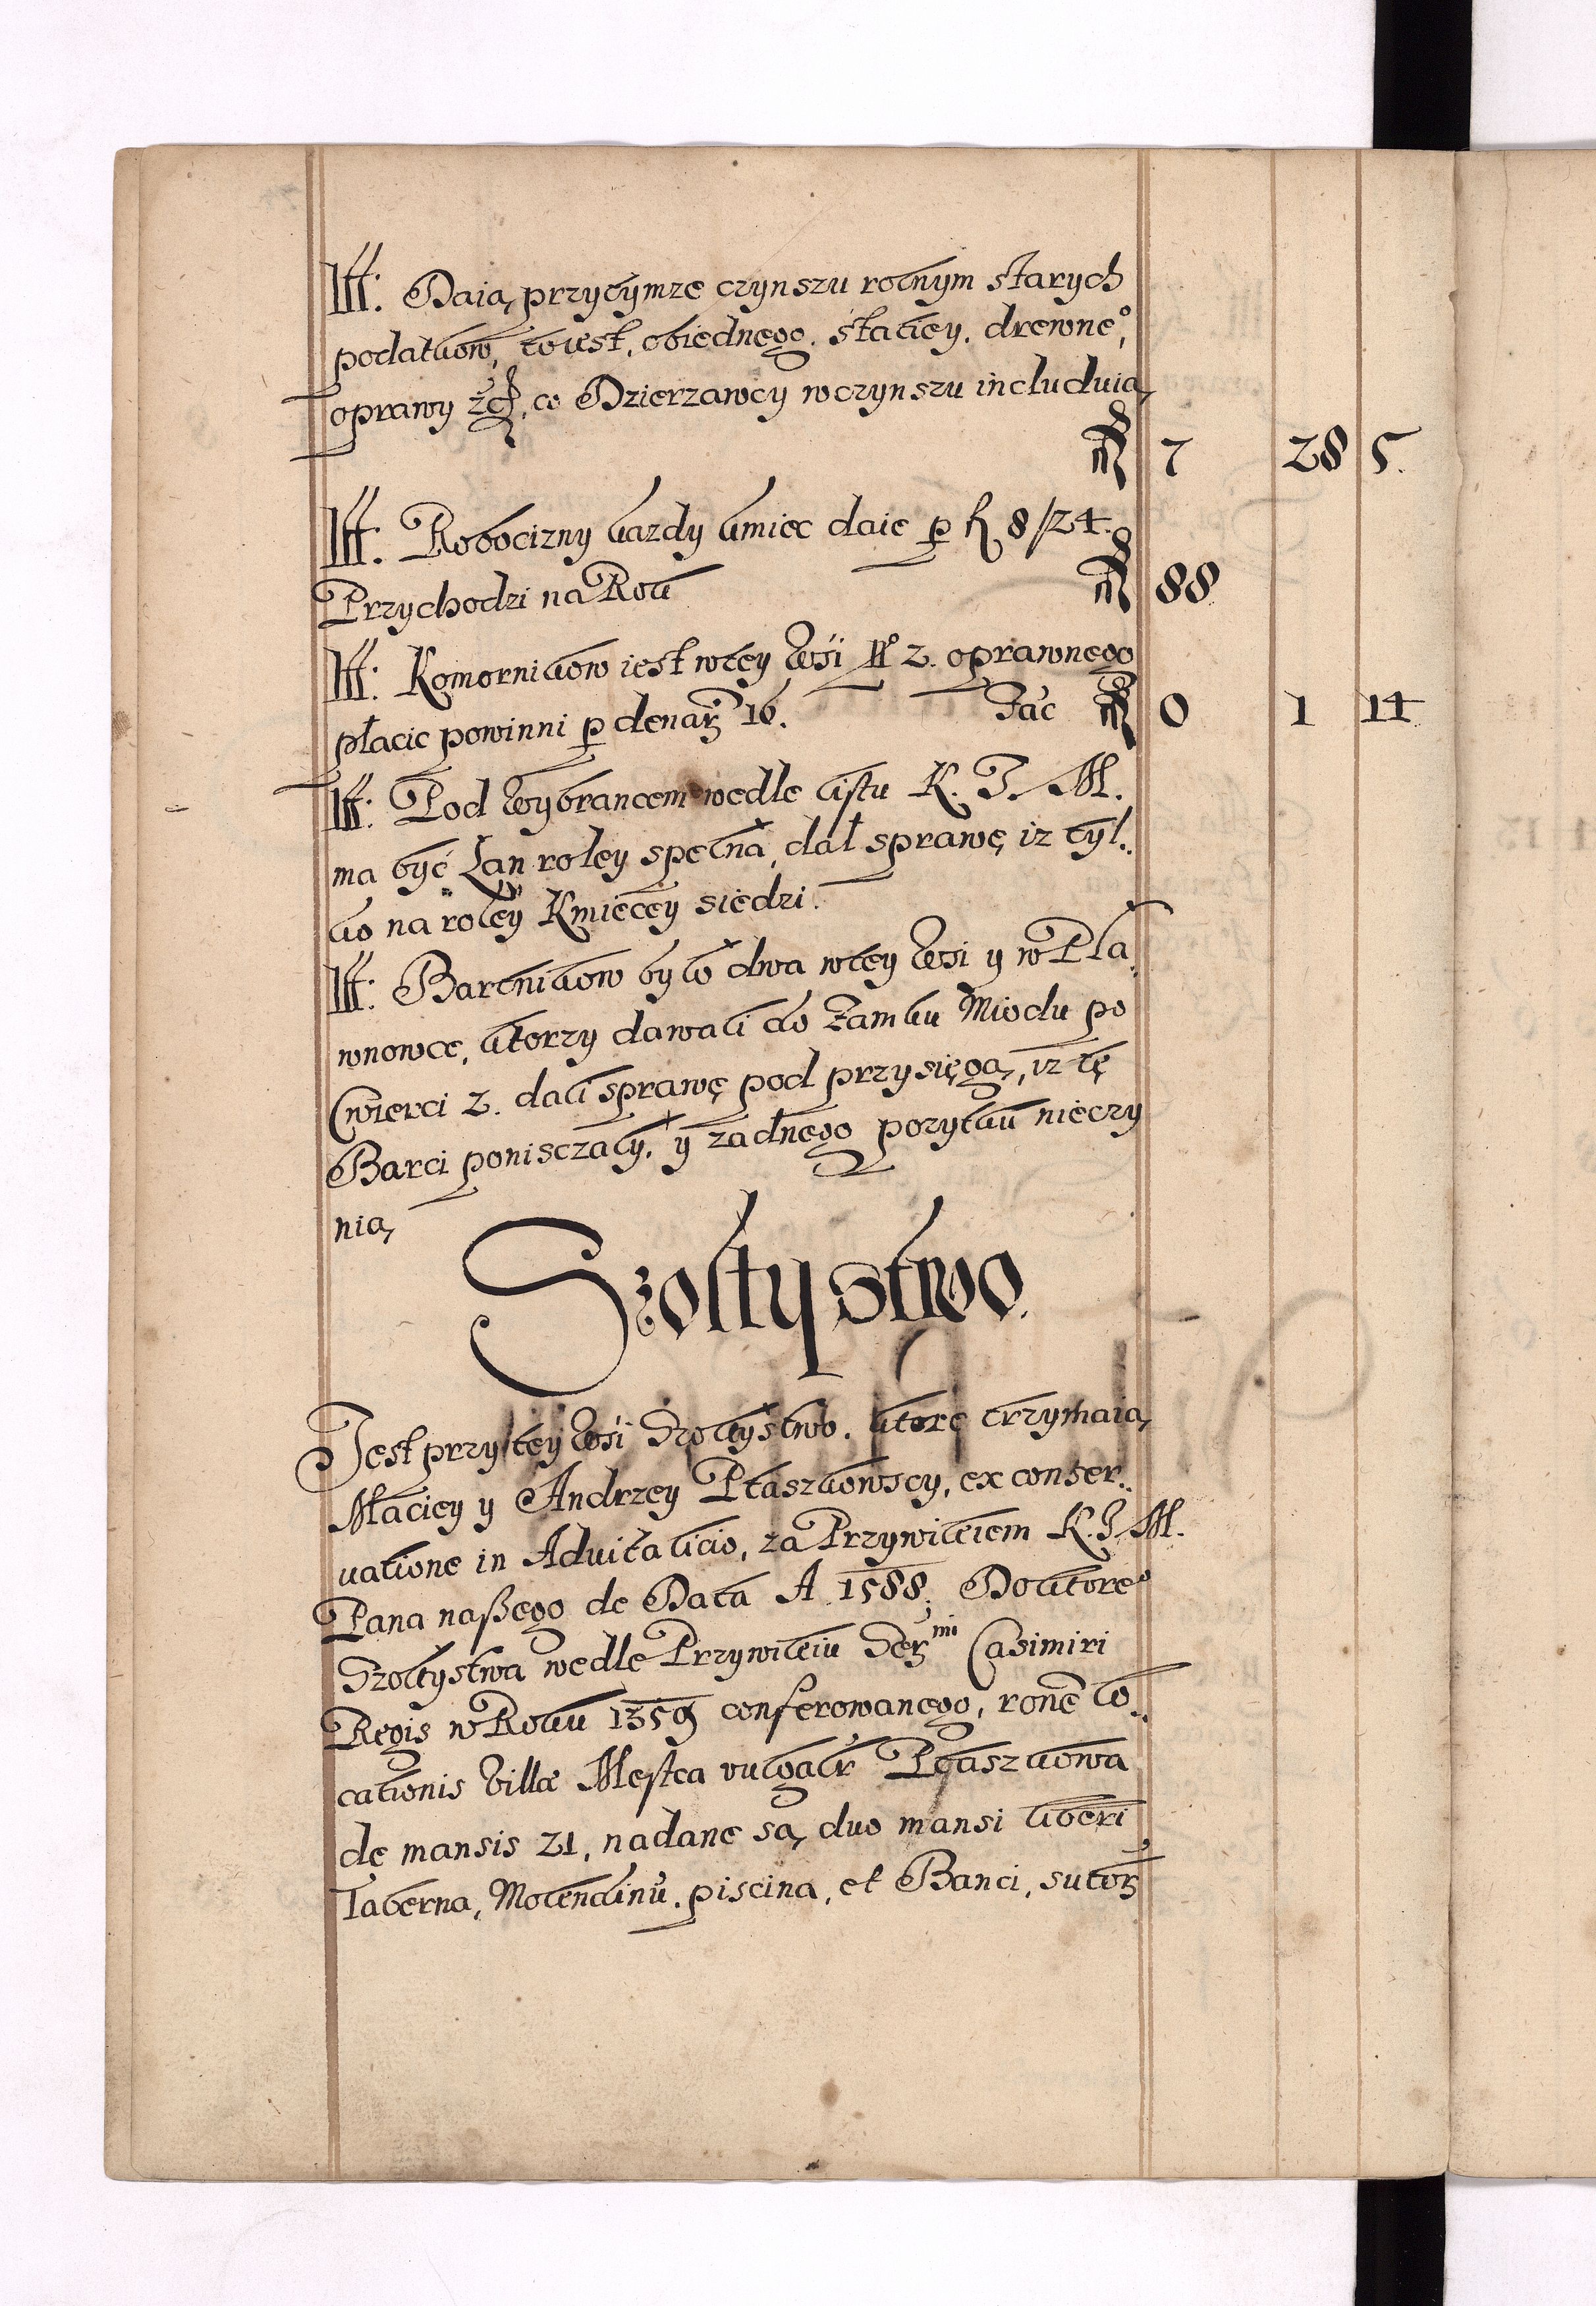 Itt: Daią przytymze czynszu rolnym starych
podatkow, to iest, obiednego. staciey. drewne°,
oprawy zc, co Dzierzawcy wczynszu includuią
fl 7 28 5.
Itt: Robocizny kazdy kmiec daie p fl 8/24.
Przychodzi na Rok fl 88
Itt: Komornikow iest wtey Wsi N° 2. oprawnego
płacic powinni p denarz 16. Fac fl 0 1 14
Itt: Pod Wybrancem wedle listu K. J. M.
ma być Łan roley spełna, dał sprawę iz tyl..
ko na roley Kmiecey siedzi.
Itt: Bartnikow było dwa wtey Wsi y w Pła,
wnowce, ktorzy dawali do Zamku Miodu po
Cwierci 2. dali sprawę pod przysięgą, iz tę
Barci ponisczały, y zadnego pozytku nieczy
nią
Szołtystwo.
Jest przy tey Wsi Szołtystwo. ktore trzymaią
Maciey y Andrzey Ptaszkowscy, ex conser..
uatione in Aduitalicio, za Przywileiem K. J. M.
Pana naßego de Data A 1588. Do ktore°
Szołtystwa wedle Przywileiu Sermi Casimiri
Regis w Roku 1359 conferowanego, rone lo..
cationis Villæ Mestca vulgalr Ptaszkowa
de mansis 21, nadane są duo mansi liberi
Taberna, Molendinū. piscina, et Banci, sutorz